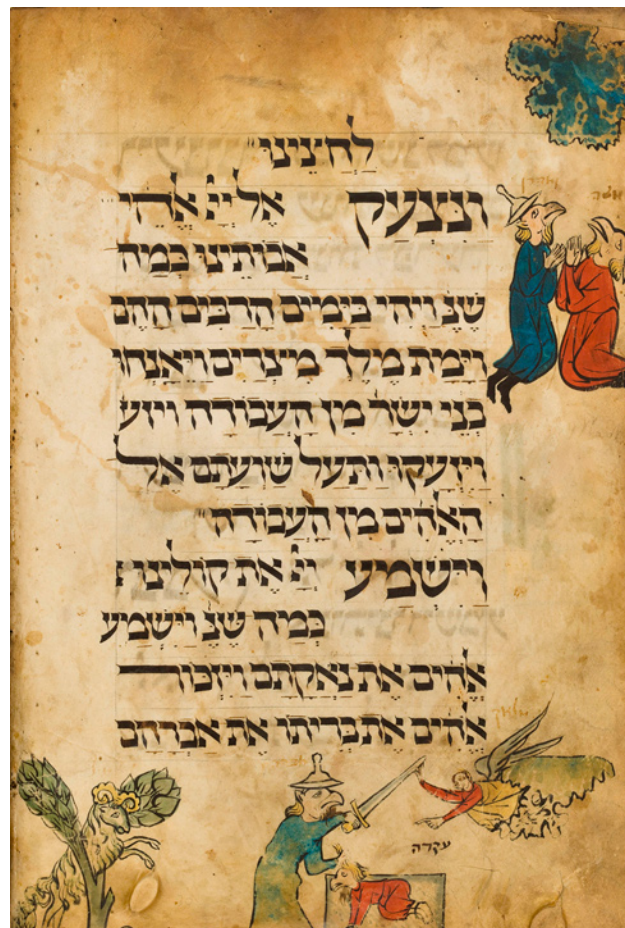 לחצינו
ונצעק אל יי אלהי
אבותינו כמה
שנ׳ ויהי בימים הרבים ההם
וימת מלך מיצרים ויאנחו
בני ישר׳ מן העבודה ויזע
ויזעקו ותעל שועתם אל
האלהים מן העבודה
וישמע יי את קולינו
כמה שנ׳ וישמע
אלהים את נאקתם ויזכור
אלהים את בריתו את אברהם
אהרן
משה
מלאך
עקדה